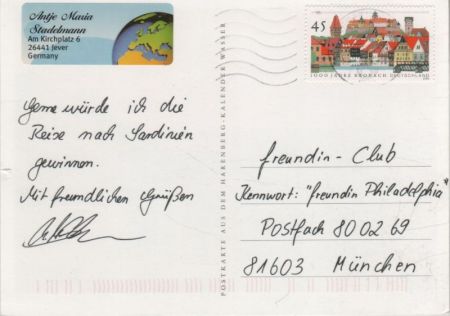 Antje Maria
Stadelmann
Am Kirchplatz 6
26441 Jever
Germany
45
1000 JAHRE KRONACH DEUTSCHLAND
Gerne würde ich die
Reise nach Sardinien
gewinnen.
Mit freundlichen Grüßen
POSTKARTE AUS DEM HARENBERG-KALENDER WASSER
freundin-Club
Kennwort: "freundin Philadelphia"
Postfach 80 02 69
81603 München